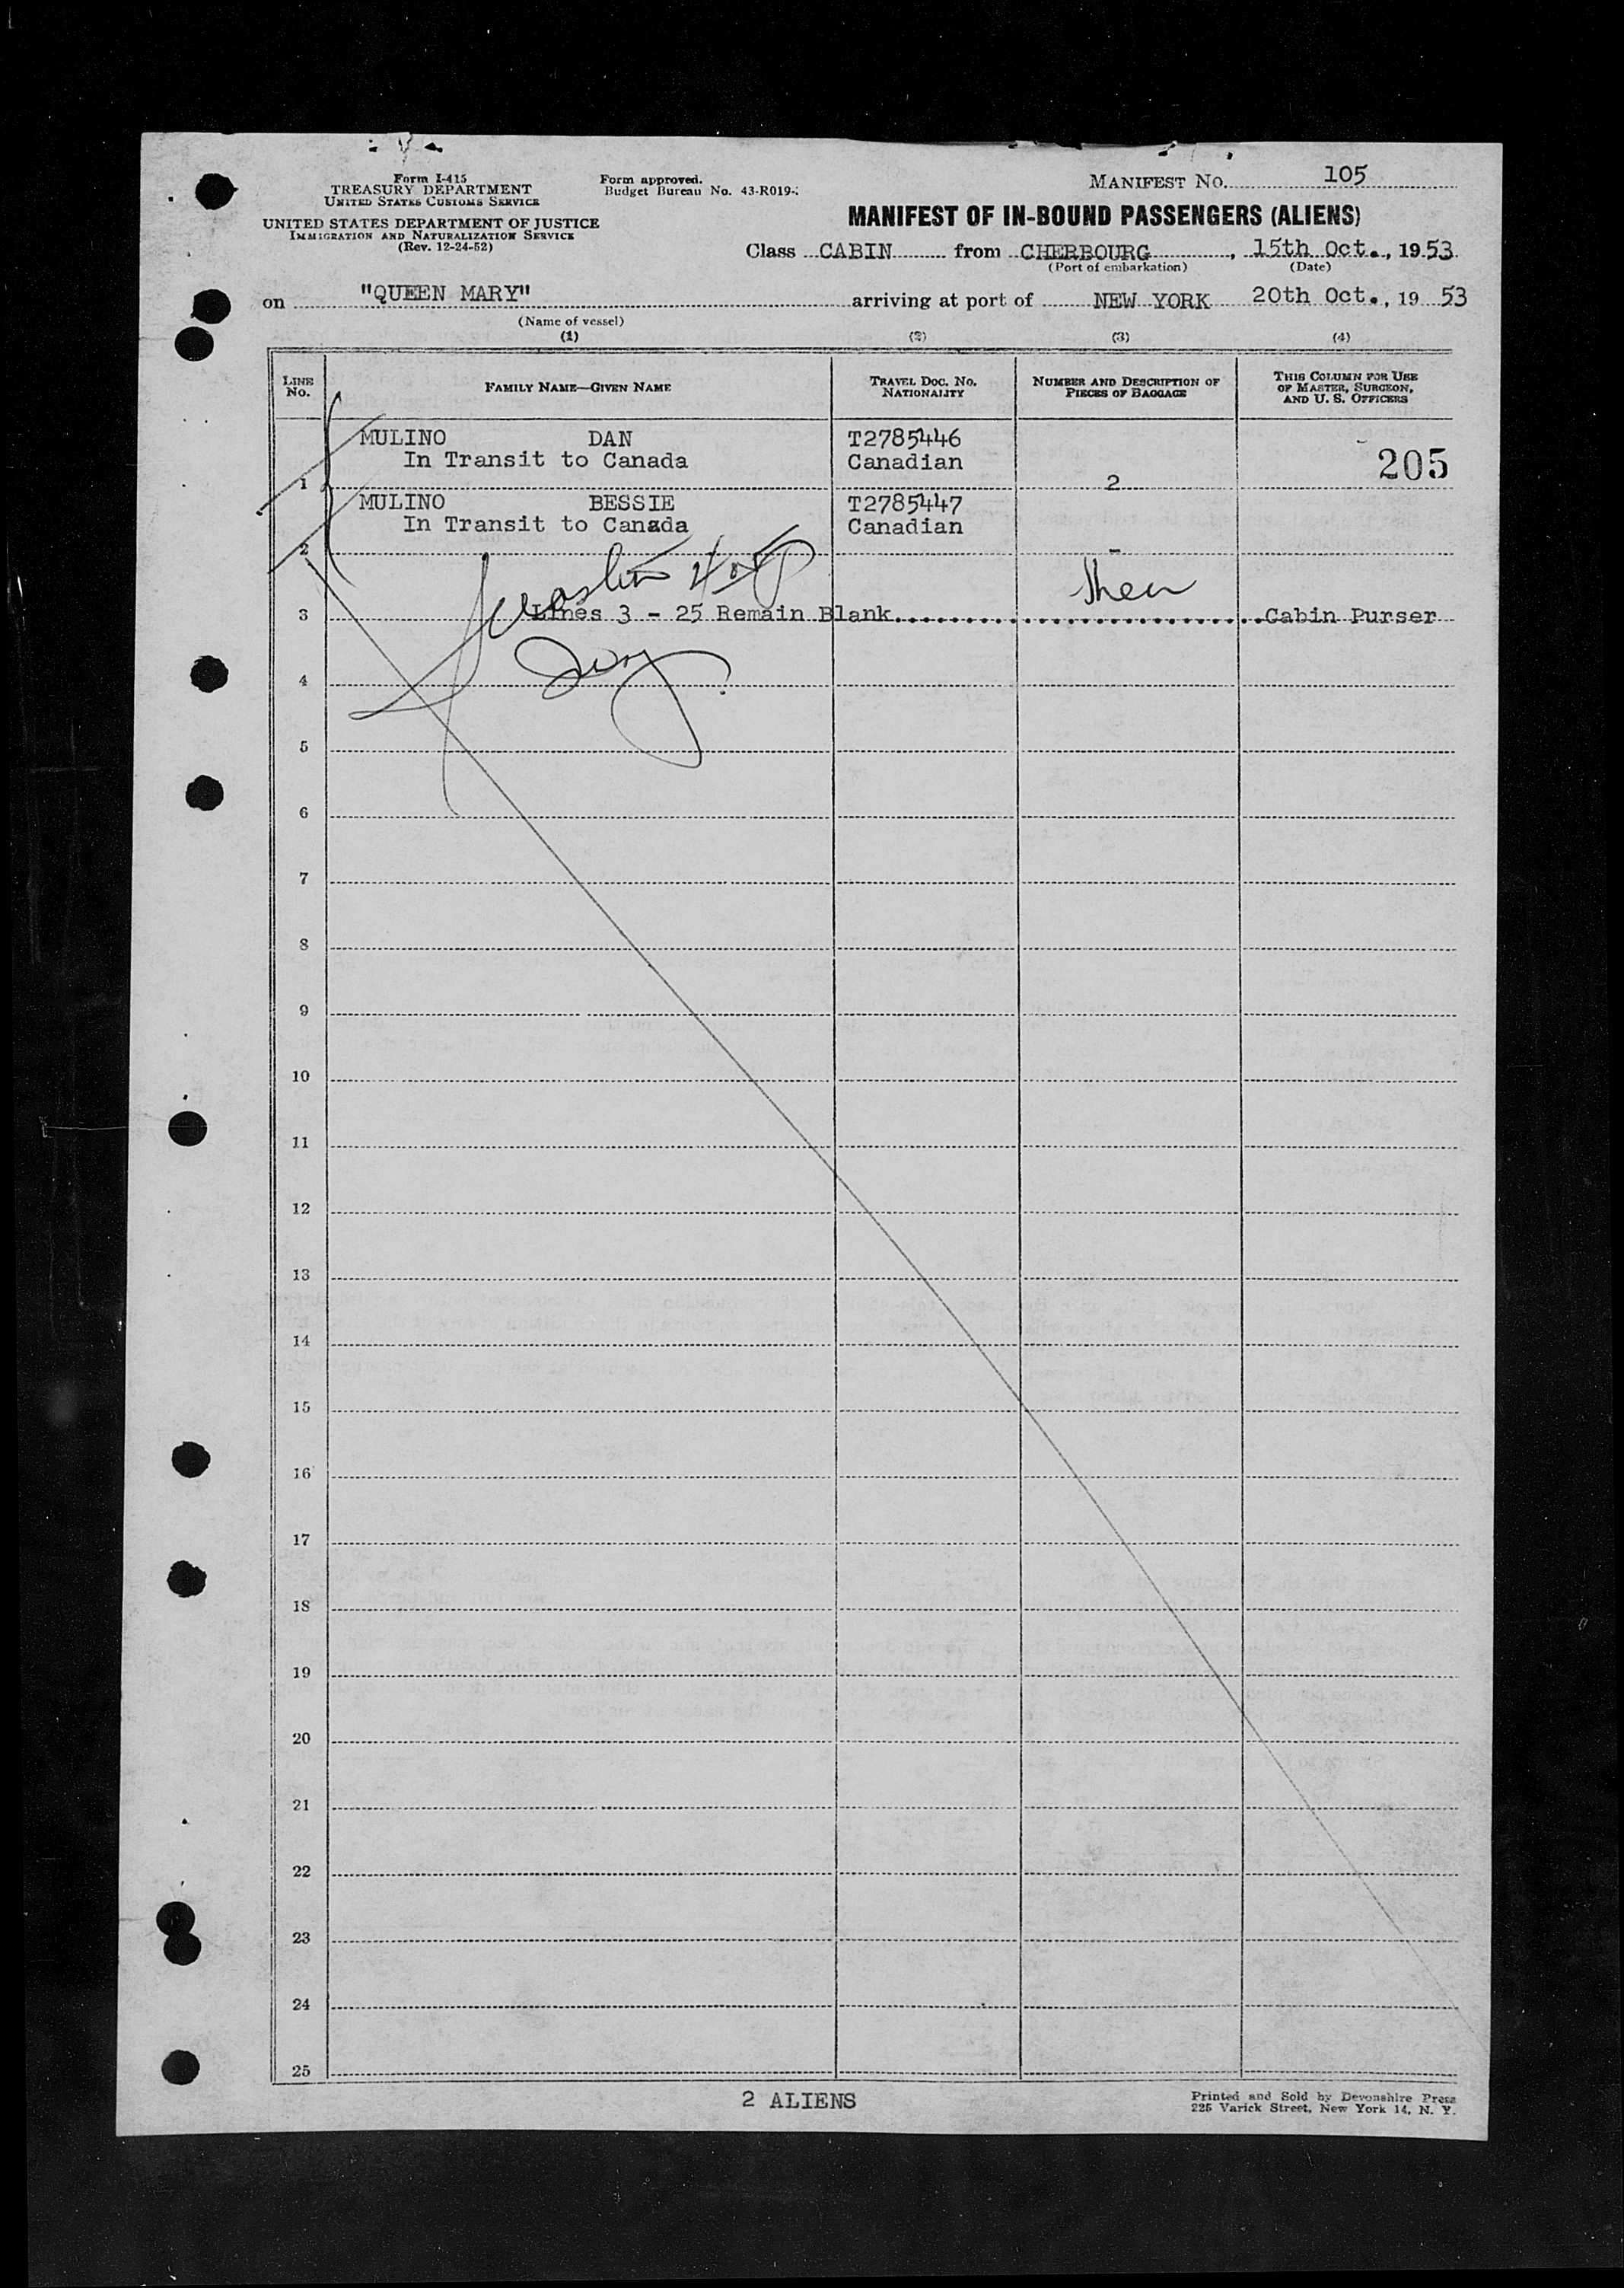 Form I-415
TREASURY DEPARTMENT
UNITED STATES CUSTOMS SERVICE
UNITED STATES DEPARTMENT OF JUSTICE
IMMIGRATION AND NATURALIZATION SERVICE
(Rev. 12-24-52)
Form approved.
Budget Bureau No. 43-R019-
MANIFEST NO. 105
MANIFEST OF IN-BOUND PASSENGERS (ALIENS)
Class CABIN from CHERBOURG, 15th Oct., 1953
(Port of embarkation) (Date)
on "QUEEN MARY" arriving at port of NEW YORK 20th Oct., 19 53
(Name of vessel)
(1) (2) (3) (4)
LINE NO. FAMILY NAME—GIVEN NAME TRAVEL DOC. NO. NATIONALITY NUMBER AND DESCRIPTION OF PIECES OF BAGGAGE THIS COLUMN FOR USE OF MASTER, SURGEON, AND U. S. OFFICERS
MULINO DAN T2785446
In Transit to Canada Canadian 205
1 2
MULINO BESSIE T2785447
In Transit to Canada Canadian
2 -
3 Lines 3 - 25 Remain Blank.............................Cabin Purser
4
5
6
7
8
9
10
11
12
13
14
15
16
17
18
19
20
21
22
23
24
25
2 ALIENS
Printed and Sold by Devonshire Press
225 Varick Street, New York 14, N. Y.